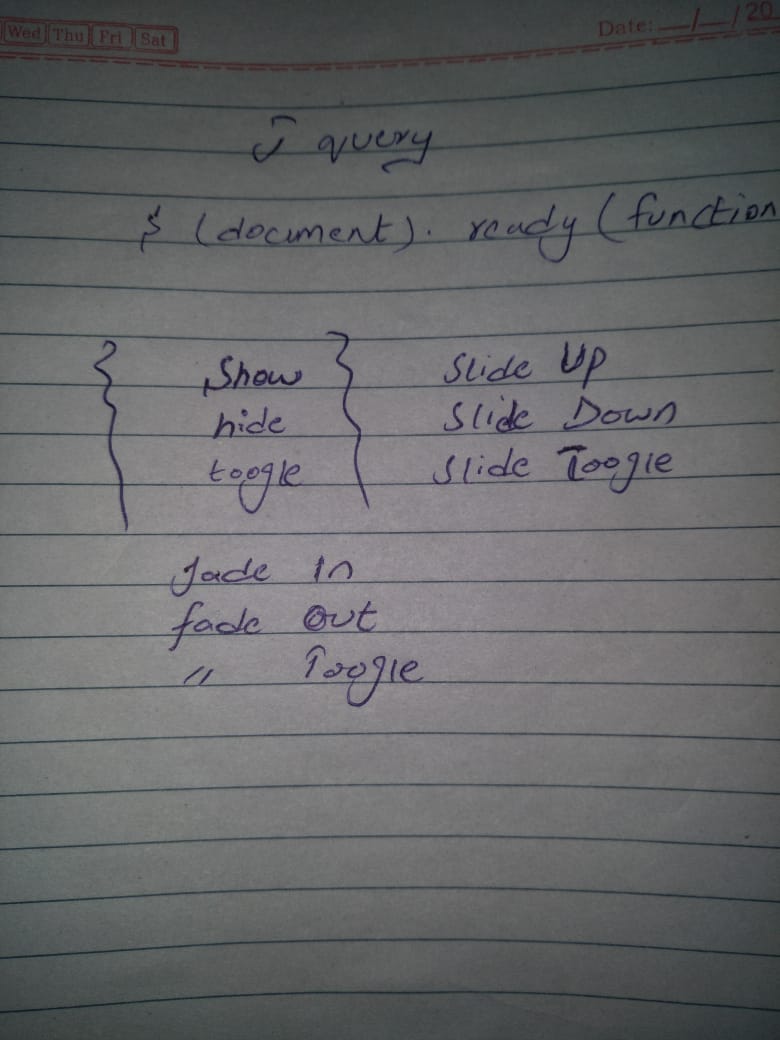 Wed Thu Fri Sat
Date: __/__/20
J query
$ (document). ready (function
{ Show } Slide Up
hide Slide Down
toogle Slide Toogle
fade In
fade Out
" Toogle